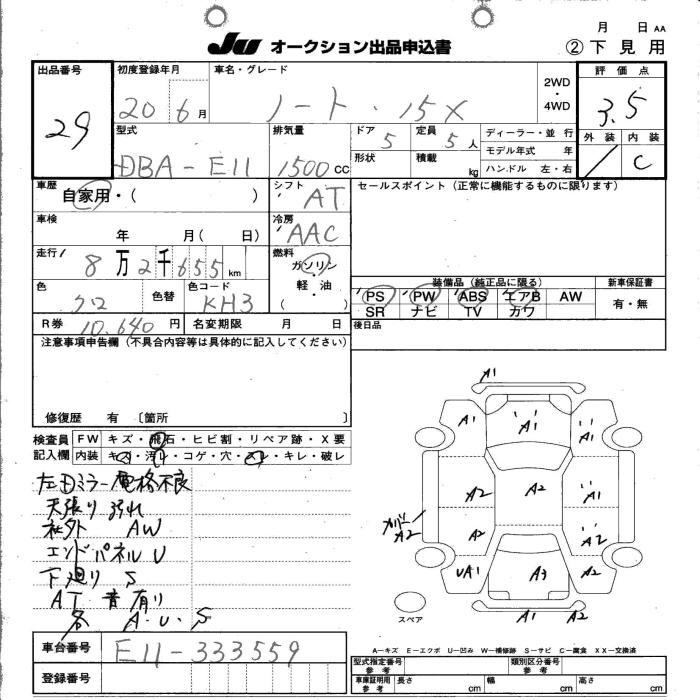 月 日 AA
JU オークション出品申込書 ②下見用
出品番号 29
初度登録年月 20 6月
車名・グレード ノート・15X
2WD・4WD
評価点 3.5
外装 内装 C
型式 DBA-E11
排気量 1500cc
ドア 5 形状
定員 5人 積載 kg
ディーラー・並行
モデル年式 年
ハンドル 左・右
車歴 自家用・( )
シフト AT
セールスポイント(正常に機能するものに限ります)
車検 年 月( 日)
冷房 AAC
走行 8万2千655km
燃料 ガソリン・軽油・( )
色 クロ 色替 色コード KH3
装備品(純正品に限る) 新車保証書
PS PW ABS エアB AW 有・無
SR ナビ TV カワ
R券 10,640円 名変期限 月 日
後日品
注意事項申告欄(不具合内容等は具体的に記入してください)
修復歴 有 〔箇所 〕
検査員記入欄
FW キズ・飛石・ヒビ割・リペア跡・X要
内装 キズ・汚レ・コゲ・穴・スレ・キレ・破レ
左Dミラー電格不良
天張り汚れ
社外 AW
エンドパネルU
下廻り S
AT 音有り
各 A.U.S
A1
A1 A1 A1
A2 A2 A1
A2 A2 A2
UA1 A3 A2
A1 A2
スペア
A-キズ E-エクボ U-凹み W-補修跡 S-サビ C-腐食 XX-交換済
車台番号 E11-333559
登録番号
型式指定番号 参考 類別区分番号 参考
車庫証明用 参考 長さ cm 幅 cm 高さ cm